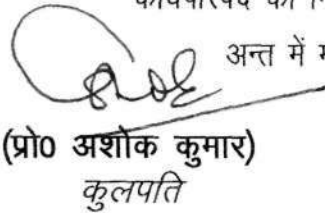 अन्त में
(प्रो0 अशोक कुमार)
कुलपति